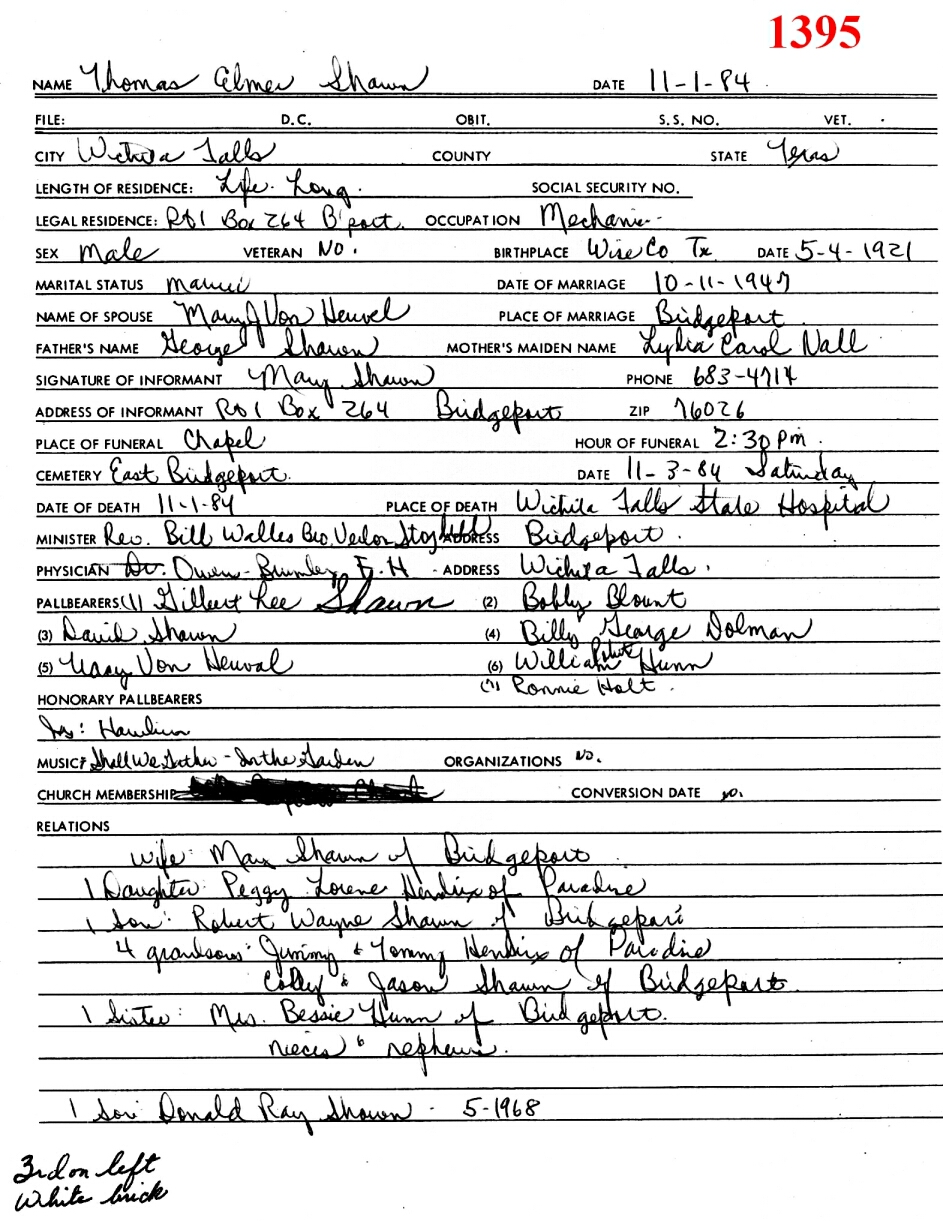 1395
NAME Thomas Elmer Shawn DATE 11-1-84
FILE: D.C. OBIT. S.S. NO. VET.
CITY Wichita Falls COUNTY STATE Texas
LENGTH OF RESIDENCE: Life Long. SOCIAL SECURITY NO.
LEGAL RESIDENCE: Rt 1 Box 264 B'port. OCCUPATION Mechanic
SEX Male VETERAN No. BIRTHPLACE Wise Co Tx DATE 5-4-1921
MARITAL STATUS Married DATE OF MARRIAGE 10-11-1947
NAME OF SPOUSE Mary J Von Heuvel PLACE OF MARRIAGE Bridgeport
FATHER'S NAME George Shawn MOTHER'S MAIDEN NAME Lydia Carol Nall
SIGNATURE OF INFORMANT Mary Shawn PHONE 683-4714
ADDRESS OF INFORMANT Rt 1 Box 264 Bridgeport ZIP 76026
PLACE OF FUNERAL Chapel HOUR OF FUNERAL 2:30 Pm.
CEMETERY East Bridgeport. DATE 11-3-84 Saturday
DATE OF DEATH 11-1-84 PLACE OF DEATH Wichita Falls State Hospital
MINISTER Rev. Bill Walles Bro. Verlon ADDRESS Bridgeport.
PHYSICIAN Dr. Owen-Brumley F.H - ADDRESS Wichita Falls.
PALLBEARERS: (1) Gilbert Lee Shawn (2) Bobby Blount
(3) David Shawn (4) Billy George Dolman
(5) Von Heuval (6) William Robert Hunn
(7) Ronnie Holt.
HONORARY PALLBEARERS
MUSIC: Shall We Gather - In the Garden ORGANIZATIONS No.
CHURCH MEMBERSHIP CONVERSION DATE no.
RELATIONS
wife: Mary Shawn of Bridgeport
1 Daughter: Peggy Lorene Hendrix of Paradise
1 son: Robert Wayne Shawn of Bridgeport
4 grandsons: Jimmy & Tommy Hendrix of Paradise
Colby & Jason Shawn of Bridgeport.
1 Sister: Mrs. Bessie Hunn of Bridgeport.
nieces & nephews.
1 son Donald Ray Shawn - 5-1968
3rd on left
White brick